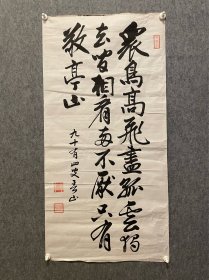 眾鳥高飛盡孤雲獨
去閒相看兩不厭只有
敬亭山
九十有四叟山